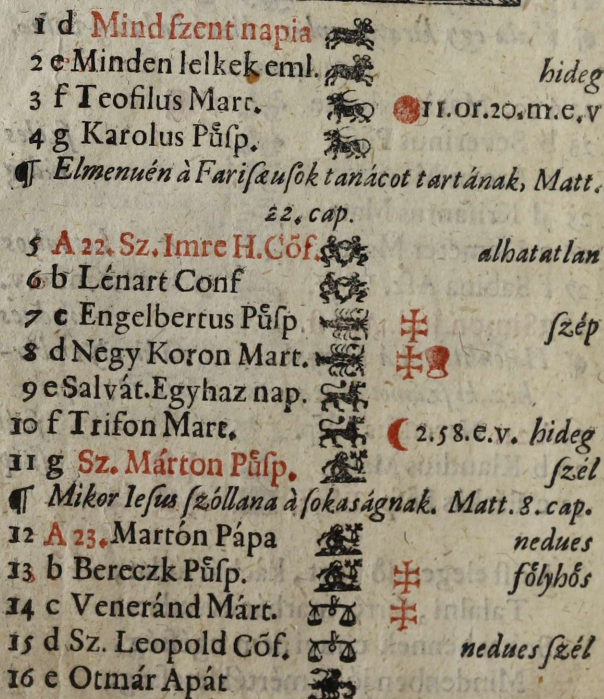 1 d Mind ſzent napia
2 e Minden lelkek eml. hideg
3 f Teofilus Mart. 11.or.20.m.e.v
4 g Karolus Pűſp.
¶ Elmenuén à Fariſæuſok tanácot tartának, Matt.
22. cap.
5 A 22. Sz. Imre H.Cõf. alhatatlan
6 b Lénart Conf
7 c Engelbertus Pűſp ſzép
8 d Negy Koron Mart.
9 e Salvát.Egyhaz nap.
10 f Trifon Mart. 2.58.e.v. hideg
11 g Sz. Márton Pűſp. ſzél
¶ Mikor Ieſus ſzóllana à ſokaságnak. Matt. 8. cap.
12 A 23. Martón Pápa nedues
13 b Bereczk Pűſp. főlyhős
14 c Veneránd Márt.
15 d Sz. Leopold Cõf. nedues ſzél
16 e Otmár Apát